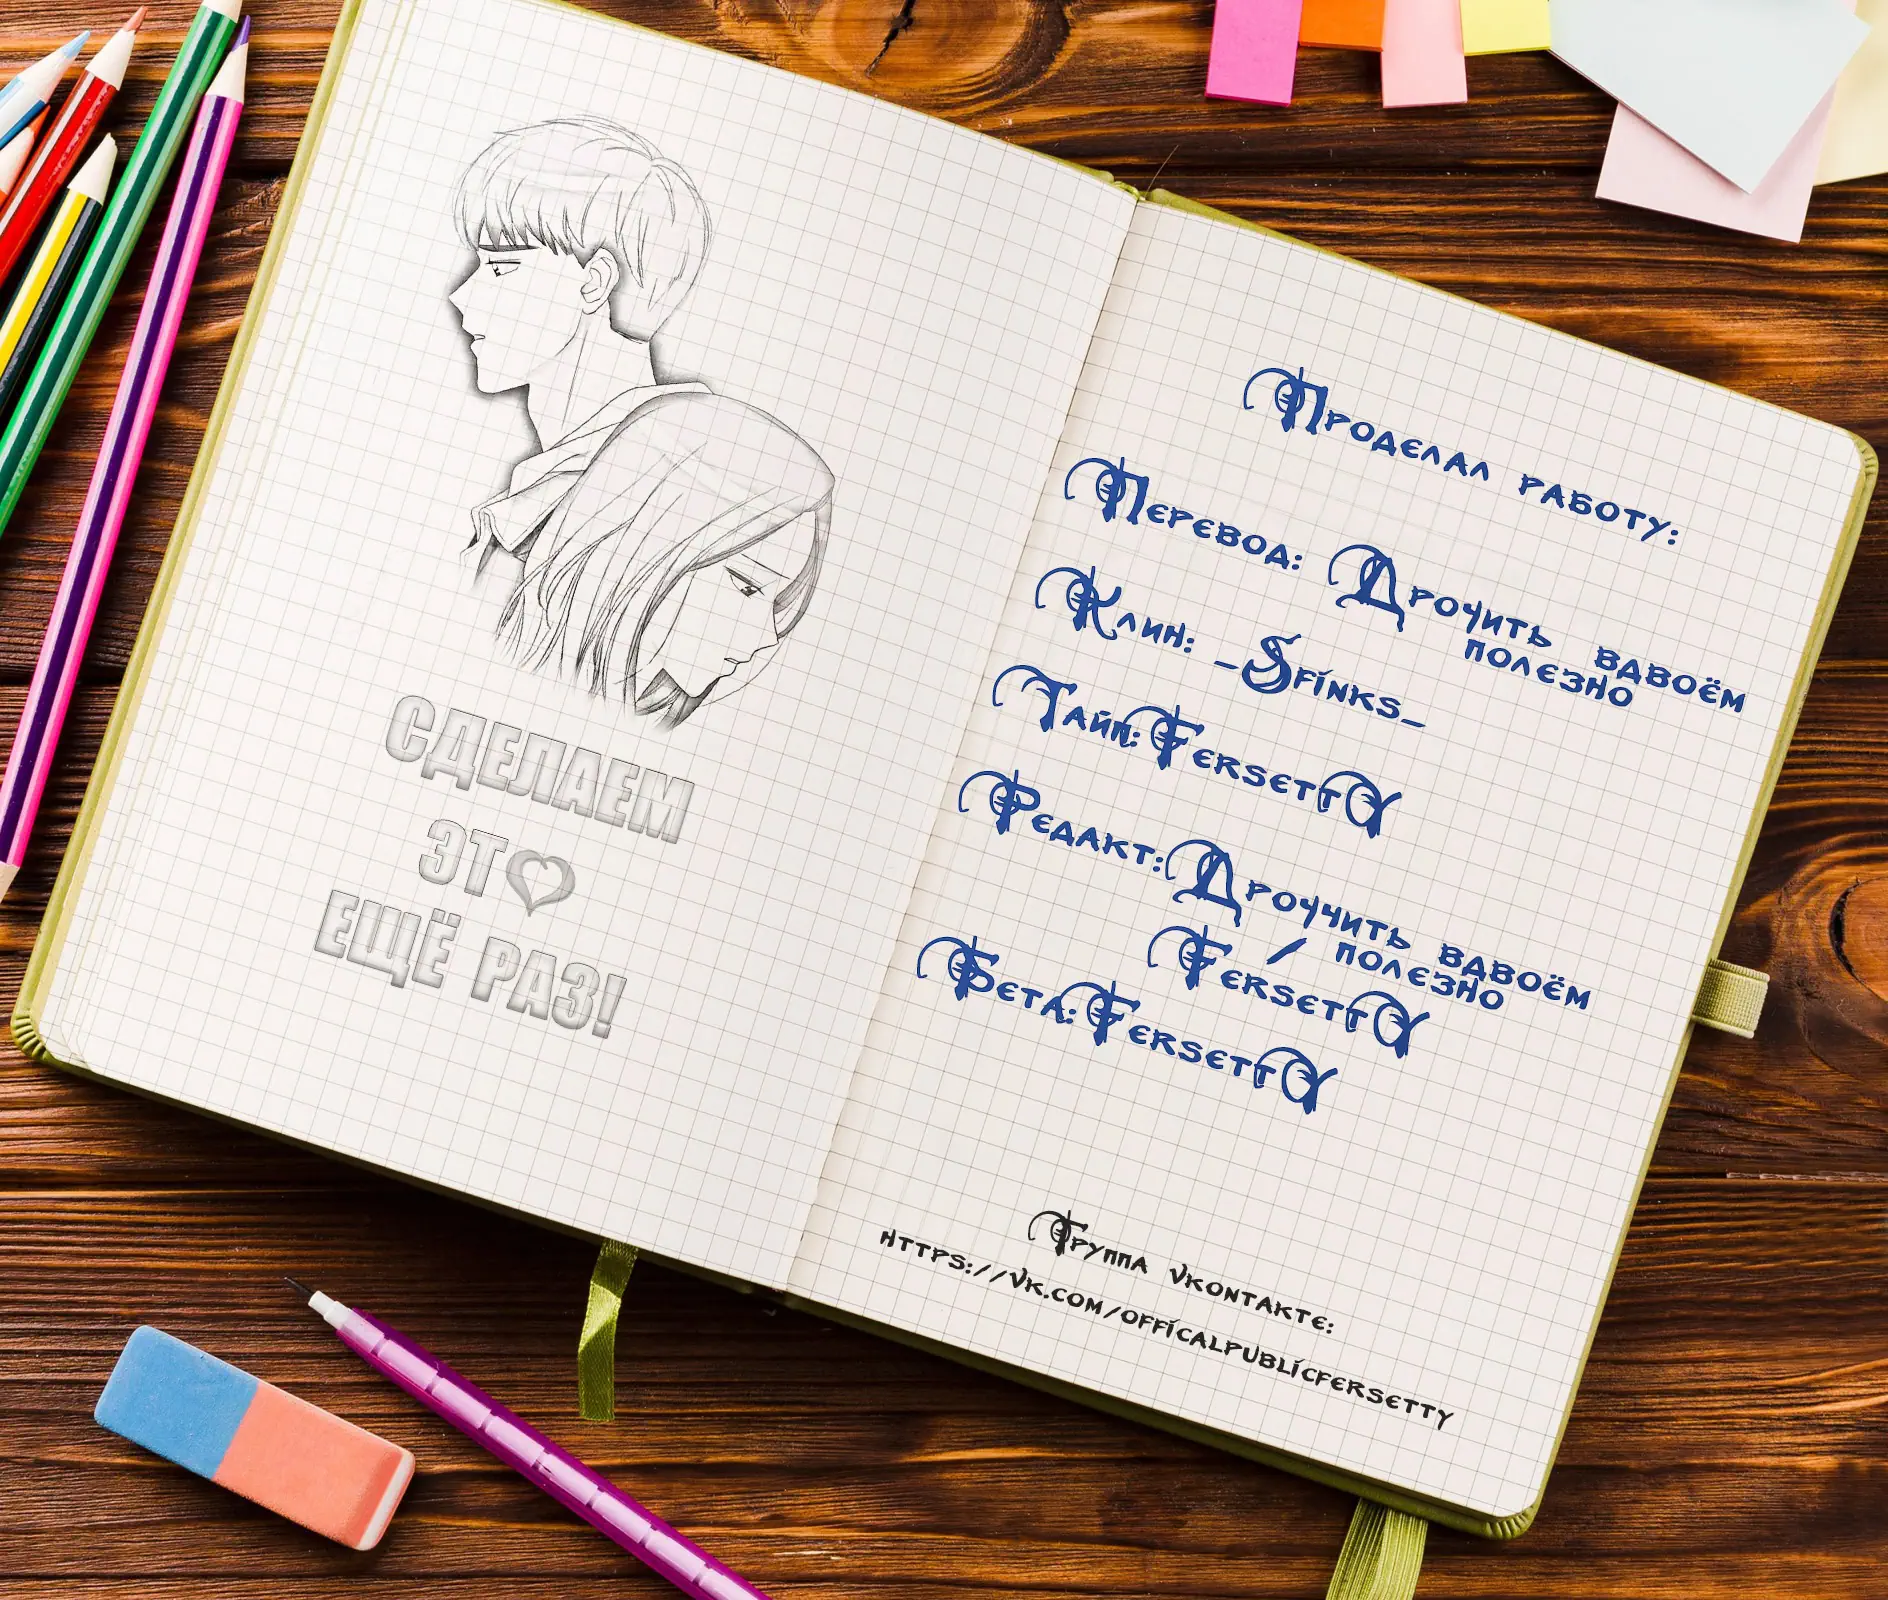 СДЕЛАЕМ
ЭТ♥
ЕЩЁ РАЗ!
Проделал работу:
Перевод: Дрочить вдвоём
полезно
Клин: _Sfinks_
Тайп: FersettY
Редакт: Дроччить вдвоём
/ полезно
FersettY
Бета: FersettY
Группа vkontakte:
https://vk.com/officalpublicfersetty